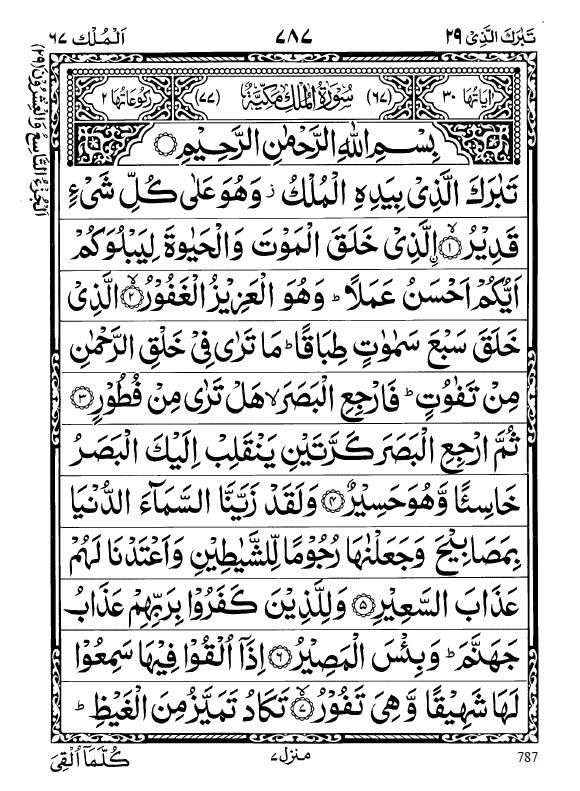 تَبٰرَكَ الَّذِیْ ٢٩
٧٨٧
اَلْمُلْك ٦٧
اٰیَاتُهَا ٣٠ (٦٧) سُوْرَةُ الْمُلْكِ مَكِّیَّةٌ (٧٧) رُكُوْعَاتُهَا ٢
بِسْمِ اللّٰهِ الرَّحْمٰنِ الرَّحِیْمِ ۝
تَبٰرَكَ الَّذِیْ بِیَدِهِ الْمُلْكُ ز وَهُوَ عَلٰی كُلِّ شَیْءٍ
قَدِیْرُ ۝١ۙ اۨلَّذِیْ خَلَقَ الْمَوْتَ وَالْحَیٰوةَ لِیَبْلُوَكُمْ
اَیُّكُمْ اَحْسَنُ عَمَلًا ؕ وَهُوَ الْعَزِیْزُ الْغَفُوْرُ ۝٢ۙ الَّذِیْ
خَلَقَ سَبْعَ سَمٰوٰتٍ طِبَاقًا ؕ مَا تَرٰی فِیْ خَلْقِ الرَّحْمٰنِ
مِنْ تَفٰوُتٍ ؕ فَارْجِعِ الْبَصَرَ ۙ هَلْ تَرٰی مِنْ فُطُوْرٍ ۝٣
ثُمَّ ارْجِعِ الْبَصَرَ كَرَّتَیْنِ یَنْقَلِبْ اِلَیْكَ الْبَصَرُ
خَاسِئًا وَّهُوَ حَسِیْرٌ ۝٤ وَلَقَدْ زَیَّنَّا السَّمَآءَ الدُّنْیَا
بِمَصَابِیْحَ وَجَعَلْنٰهَا رُجُوْمًا لِّلشَّیٰطِیْنِ وَاَعْتَدْنَا لَهُمْ
عَذَابَ السَّعِیْرِ ۝٥ وَلِلَّذِیْنَ كَفَرُوْا بِرَبِّهِمْ عَذَابُ
جَهَنَّمَ ؕ وَبِئْسَ الْمَصِیْرُ ۝٦ اِذَاۤ اُلْقُوْا فِیْهَا سَمِعُوْا
لَهَا شَهِیْقًا وَّهِیَ تَفُوْرُ ۝٧ۙ تَكَادُ تَمَیَّزُ مِنَ الْغَیْظِ ؕ
اَلْجُزْءُ التَّاسِعُ وَالْعِشْرُوْنَ (٢٩)
787
منزل ٧
كُلَّمَاۤ اُلْقِیَ